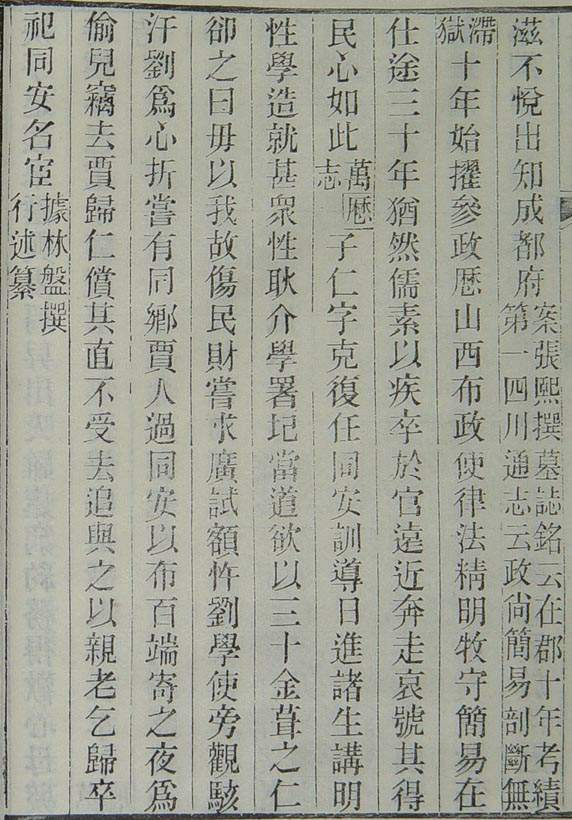 滋不悅出知成都府案張熙撰墓誌銘云在郡十年考績第一四川通志云政尙簡易剖斷無
滯獄十年始擢參政歴山西布政使律法精明牧守簡易在
仕途三十年猶然儒素以疾卒於官遠近奔走哀號其得
民心如此萬歴志子仁字克復任同安訓導日進諸生講明
性學造就甚衆性耿介學署圮當道欲以三十金葺之仁
卻之曰毋以我故傷民財嘗求廣試額忤劉學使旁觀駭
汗劉爲心折嘗有同鄉賈人過同安以布百端寄之夜爲
偷兒竊去賈歸仁償其直不受去追與之以親老乞歸卒
祀同安名宦據林盤撰行述纂